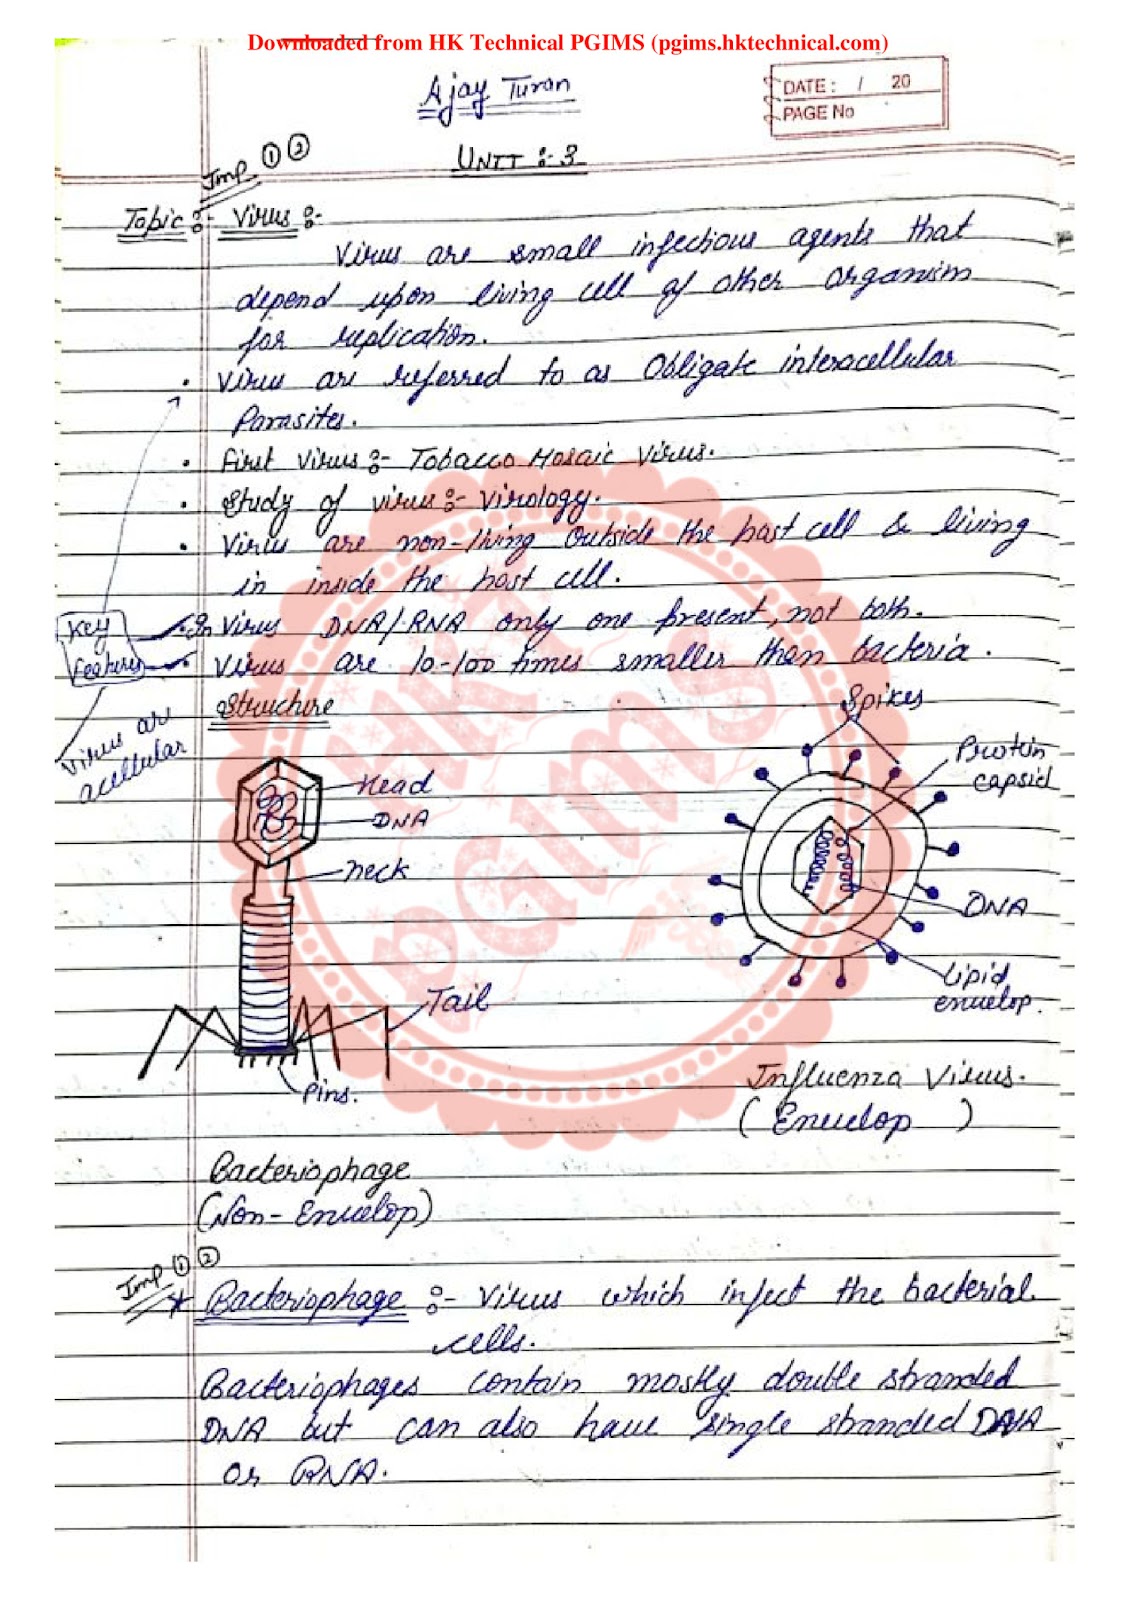 Downloaded from HK Technical PGIMS (pgims.hktechnical.com)
Ajay Turan
DATE: / 20
PAGE No
UNIT :- 3
Imp ① ②
Topic :- Virus :-
Virus are small infectious agents that
depend upon living cell of other organism
for replication.
• Virus are referred to as Obligate interacellular
Parasites.
• First Virus :- Tobacco Mosaic Virus.
• Study of virus :- Virology.
• Virus are non-living outside the host cell & living
in inside the host cell.
Key
features
• In Virus DNA/RNA only one present, not both.
• Virus are 10-100 times smaller than bacteria.
Virus are
acellular
Structure
Head
DNA
neck
Tail
Pins.
Bacteriophage
(Non-Envelop)
Spikes
Protein
capsid
DNA
Lipid
envelop.
Influenza Virus.
(Envelop )
HK
PGIMS
Imp ① ②
* Bacteriophage :- Virus which infect the bacterial
cells.
Bacteriophages contain mostly double stranded
DNA but can also have single stranded DNA
or RNA.